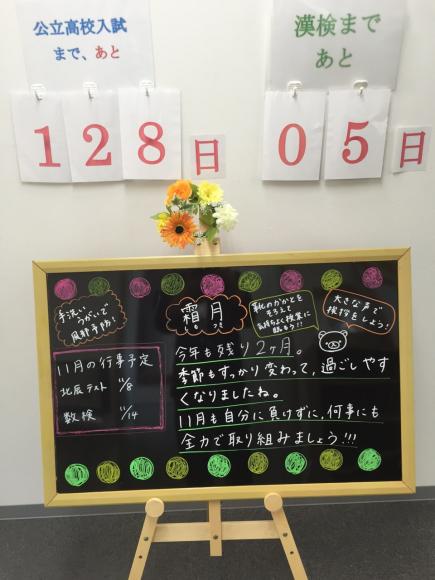 公立高校入試
まで、あと
128日
漢検まで
あと
05日
手洗い
うがいで
風邪予防!
霜月
靴のかかとを
そろえて
気持ちよく授業に
臨もう!!
大きな声で
挨拶をしよう!
11月の行事予定
北辰テスト 11/8
数検 11/14
今年も残り2ヶ月。
季節もすっかり変わって、過ごしやす
くなりましたね。
11月も自分に負けずに、何事にも
全力で取り組みましょう!!!